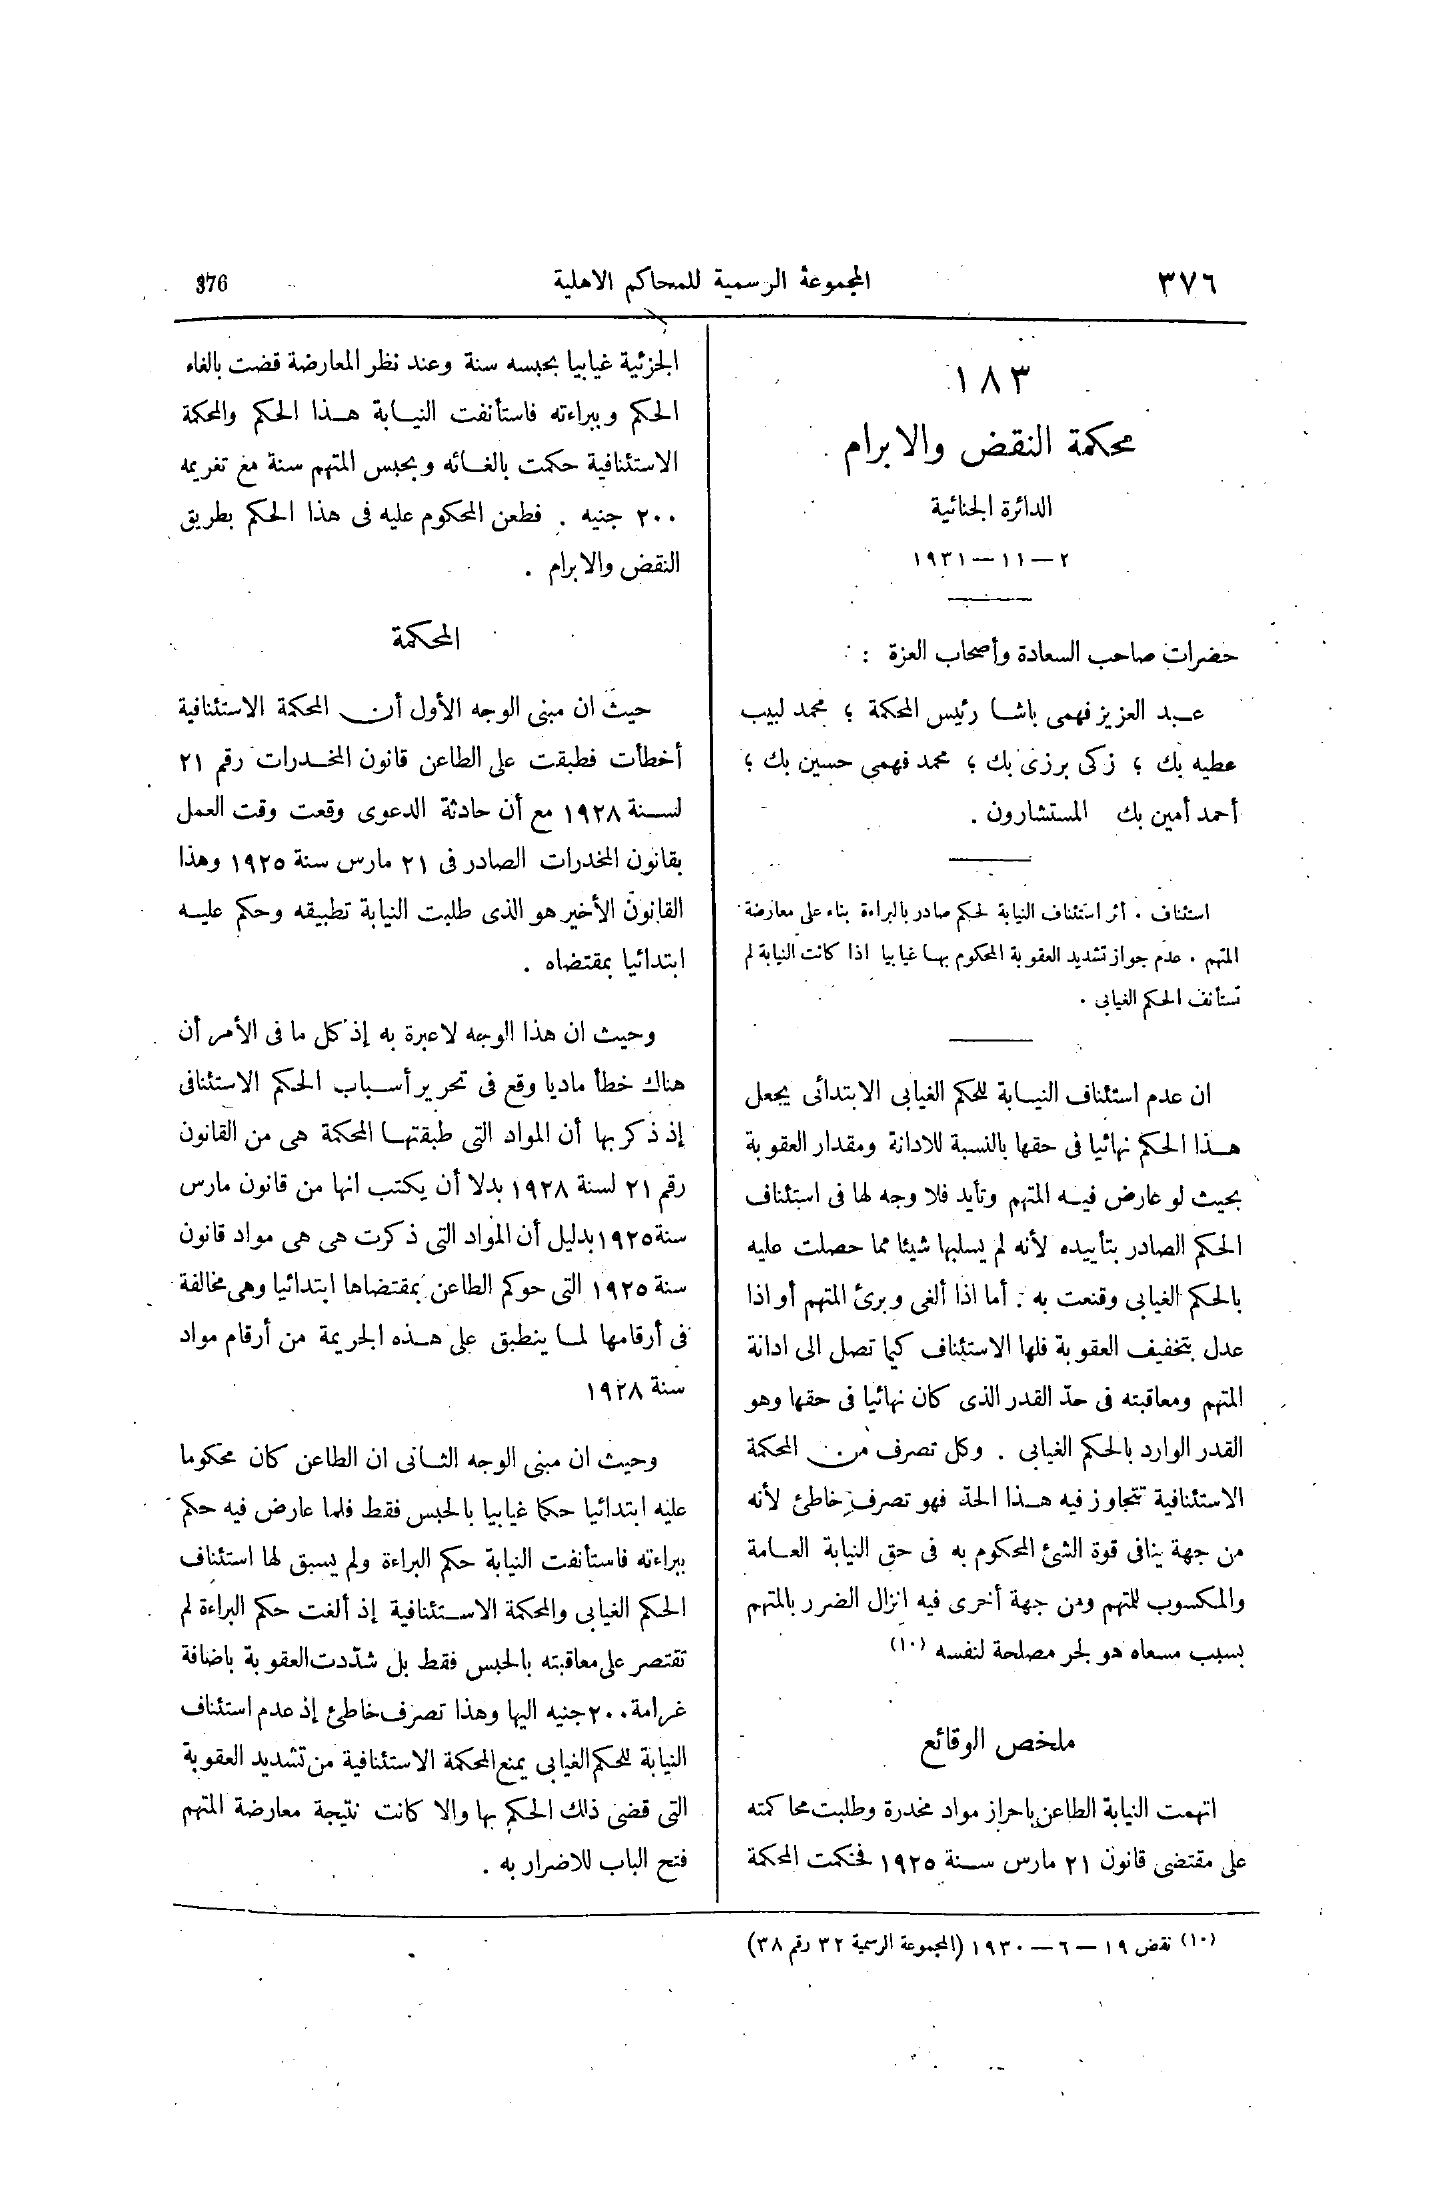 ٣٧٦
المجموعة الرسمية للمحاكم الاهلية
376
١٨٣
محكمة النقض والابرام
الدائرة الجنائية
٢ — ١١ — ١٩٣١
حضرات صاحب السعادة وأصحاب العزة :
عبد العزيز فهمى باشا رئيس المحكمة ؛ محمد لبيب
عطيه بك ؛ زكى برزى بك ؛ محمد فهمى حسين بك ؛
أحمد أمين بك المستشارون .
استئناف . أثر استئناف النيابة لحكم صادر بالبراءة بناء على معارضة
المتهم . عدم جواز تشديد العقوبة المحكوم بها غيابيا اذا كانت النيابة لم
تستأنف الحكم الغيابى .
ان عدم استئناف النيابة للحكم الغيابى الابتدائى يجعل
هذا الحكم نهائيا فى حقها بالنسبة للادانة ومقدار العقوبة
بحيث لو عارض فيه المتهم وتأيد فلا وجه لها فى استئناف
الحكم الصادر بتأييده لأنه لم يسلبها شيئا مما حصلت عليه
بالحكم الغيابى وقنعت به . أما اذا ألغى وبرئ المتهم أو اذا
عدل بتخفيف العقوبة فلها الاستئناف كيما تصل الى ادانة
المتهم ومعاقبته فى حدّ القدر الذى كان نهائيا فى حقها وهو
القدر الوارد بالحكم الغيابى . وكل تصرف من المحكمة
الاستئنافية تتجاوز فيه هذا الحدّ فهو تصرف خاطئ لأنه
من جهة ينافى قوة الشئ المحكوم به فى حق النيابة العامة
والمكسوب للمتهم ومن جهة أخرى فيه انزال الضرر بالمتهم
بسبب مسعاه هو لجر مصلحة لنفسه (١٠)
ملخص الوقائع
اتهمت النيابة الطاعن باحراز مواد مخدرة وطلبت محاكمته
على مقتضى قانون ٢١ مارس سنة ١٩٢٥ فحكمت المحكمة
الجزئية غيابيا بحبسه سنة وعند نظر المعارضة قضت بالغاء
الحكم وببراءته فاستأنفت النيابة هذا الحكم والمحكمة
الاستئنافية حكمت بالغائه وبحبس المتهم سنة مع تغريمه
٢٠٠ جنيه . فطعن المحكوم عليه فى هذا الحكم بطريق
النقض والابرام .
المحكمة
حيث ان مبنى الوجه الأول أن المحكمة الاستئنافية
أخطأت فطبقت على الطاعن قانون المخدرات رقم ٢١
لسنة ١٩٢٨ مع أن حادثة الدعوى وقعت وقت العمل
بقانون المخدرات الصادر فى ٢١ مارس سنة ١٩٢٥ وهذا
القانون الأخير هو الذى طلبت النيابة تطبيقه وحكم عليه
ابتدائيا بمقتضاه .
وحيث ان هذا الوجه لا عبرة به إذ كل ما فى الأمر أن
هناك خطأ ماديا وقع فى تحرير أسباب الحكم الاستئنافى
إذ ذكر بها أن المواد التى طبقتها المحكمة هى من القانون
رقم ٢١ لسنة ١٩٢٨ بدلا أن يكتب انها من قانون مارس
سنة ١٩٢٥ بدليل أن المواد التى ذكرت هى هى مواد قانون
سنة ١٩٢٥ التى حوكم الطاعن بمقتضاها ابتدائيا وهى مخالفة
فى أرقامها لما ينطبق على هذه الجريمة من أرقام مواد
سنة ١٩٢٨
وحيث ان مبنى الوجه الثانى ان الطاعن كان محكوما
عليه ابتدائيا حكما غيابيا بالحبس فقط فلما عارض فيه حكم
ببراءته فاستأنفت النيابة حكم البراءة ولم يسبق لها استئناف
الحكم الغيابى والمحكمة الاستئنافية إذ ألغت حكم البراءة لم
تقتصر على معاقبته بالحبس فقط بل شدّدت العقوبة باضافة
غرامة ٢٠٠ جنيه اليها وهذا تصرف خاطئ إذ عدم استئناف
النيابة للحكم الغيابى يمنع المحكمة الاستئنافية من تشديد العقوبة
التى قضى ذلك الحكم بها والا كانت نتيجة معارضة المتهم
فتح الباب للاضرار به .
(١٠) نقض ١٩ — ٦ — ١٩٣٠ (المجموعة الرسمية ٣٢ رقم ٣٨)